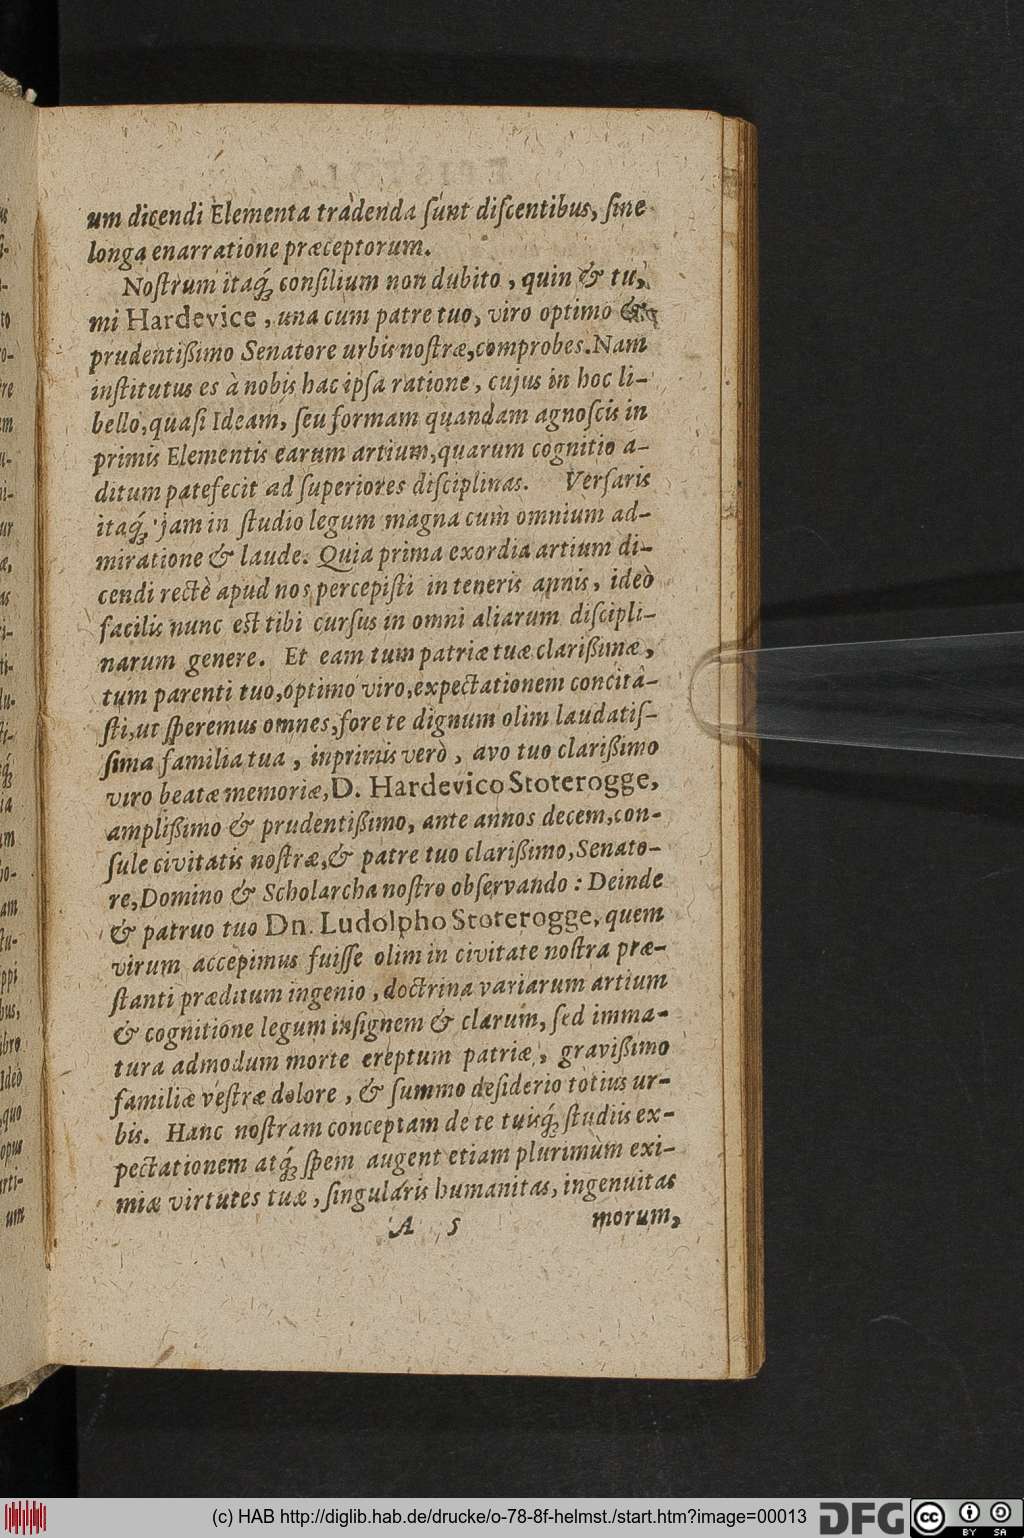 um dicendi Elementa tradenda ſunt diſcentibus, ſine
longa enarratione præceptorum.
Noſtrum itaq́; conſilium non dubito, quin & tu,
mi Hardevice, una cum patre tuo, viro optimo &
prudentißimo Senatore urbis noſtræ, comprobes. Nam
inſtitutus es à nobis hac ipſa ratione, cujus in hoc li-
bello, quaſi Ideam, ſeu formam quandam agnoſcis in
primis Elementis earum artium, quarum cognitio a-
ditum patefecit ad ſuperiores diſciplinas. Verſaris
itaq́; jam in ſtudio legum magna cum omnium ad-
miratione & laude. Quia prima exordia artium di-
cendi rectè apud nos percepiſti in teneris annis, ideò
facilis nunc eſt tibi curſus in omni aliarum diſcipli-
narum genere. Et eam tum patriæ tuæ clarißimæ,
tum parenti tuo, optimo viro, expectationem concita-
ſti, ut ſperemus omnes, fore te dignum olim laudatiſ-
ſima familia tua, inprimis verò, avo tuo clarißimo
viro beatæ memoriæ, D. Hardevico Stoterogge,
amplißimo & prudentißimo, ante annos decem, con-
ſule civitatis noſtræ, & patre tuo clarißimo, Senato-
re, Domino & Scholarcha noſtro obſervando: Deinde
& patruo tuo Dn. Ludolpho Stoterogge, quem
virum accepimus fuiſſe olim in civitate noſtra præ-
ſtanti præditum ingenio, doctrina variarum artium
& cognitione legum inſignem & clarum, ſed imma-
tura admodum morte ereptum patriæ, gravißimo
familiæ veſtræ dolore, & ſummo deſiderio totius ur-
bis. Hanc noſtram conceptam de te tuisq́; ſtudiis ex-
pectationem atq́; ſpem augent etiam plurimùm exi-
miæ virtutes tuæ, ſingularis humanitas, ingenuitas
A 5 morum,
(c) HAB http://diglib.hab.de/drucke/o-78-8f-helmst./start.htm?image=00013
DFG
cc
BY SA